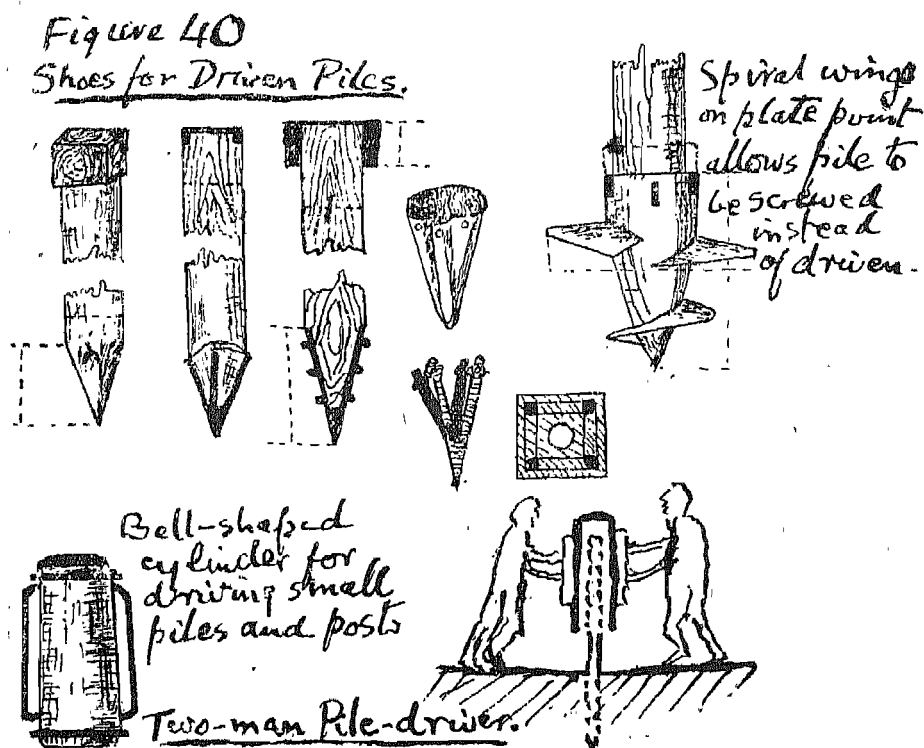 Figure 40
Shoes for Driven Piles.
Spiral wings
on plate point
allows pile to
be screwed
instead
of driven.
Bell-shaped
cylinder for
driving small
piles and posts
Two-man Pile-driver.